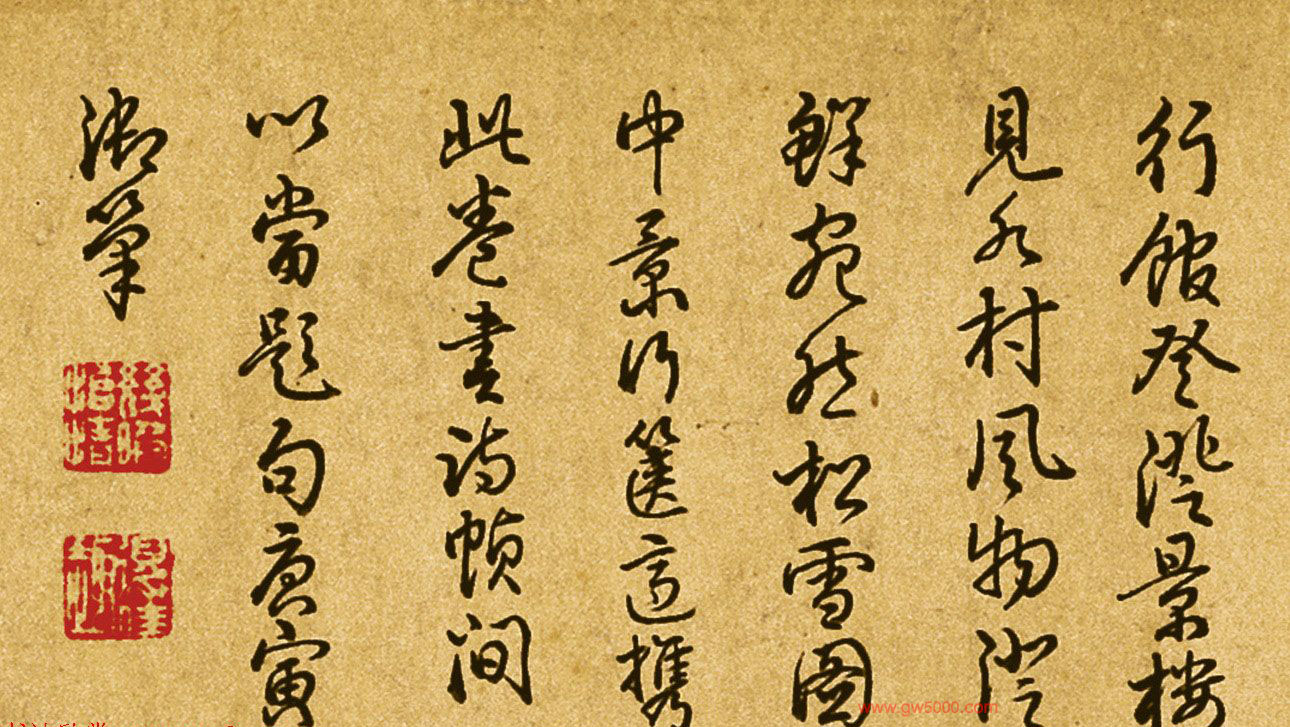 行館登澄景樓
見水村風物澄
鮮宛然松雪圖
中景行篋適攜
此卷書詩幀間
以當題句庚寅
御筆
www.gw5000.com